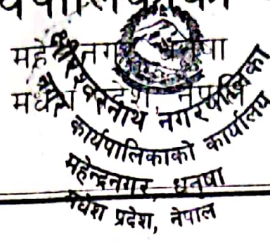 महेन्द्रनगर, धनुषा
मधेश प्रदेश, नेपाल
क्षीरेश्वरनाथ नगरपालिका
नगर कार्यपालिकाको कार्यालय
महेन्द्रनगर, धनुषा
मधेश प्रदेश, नेपाल